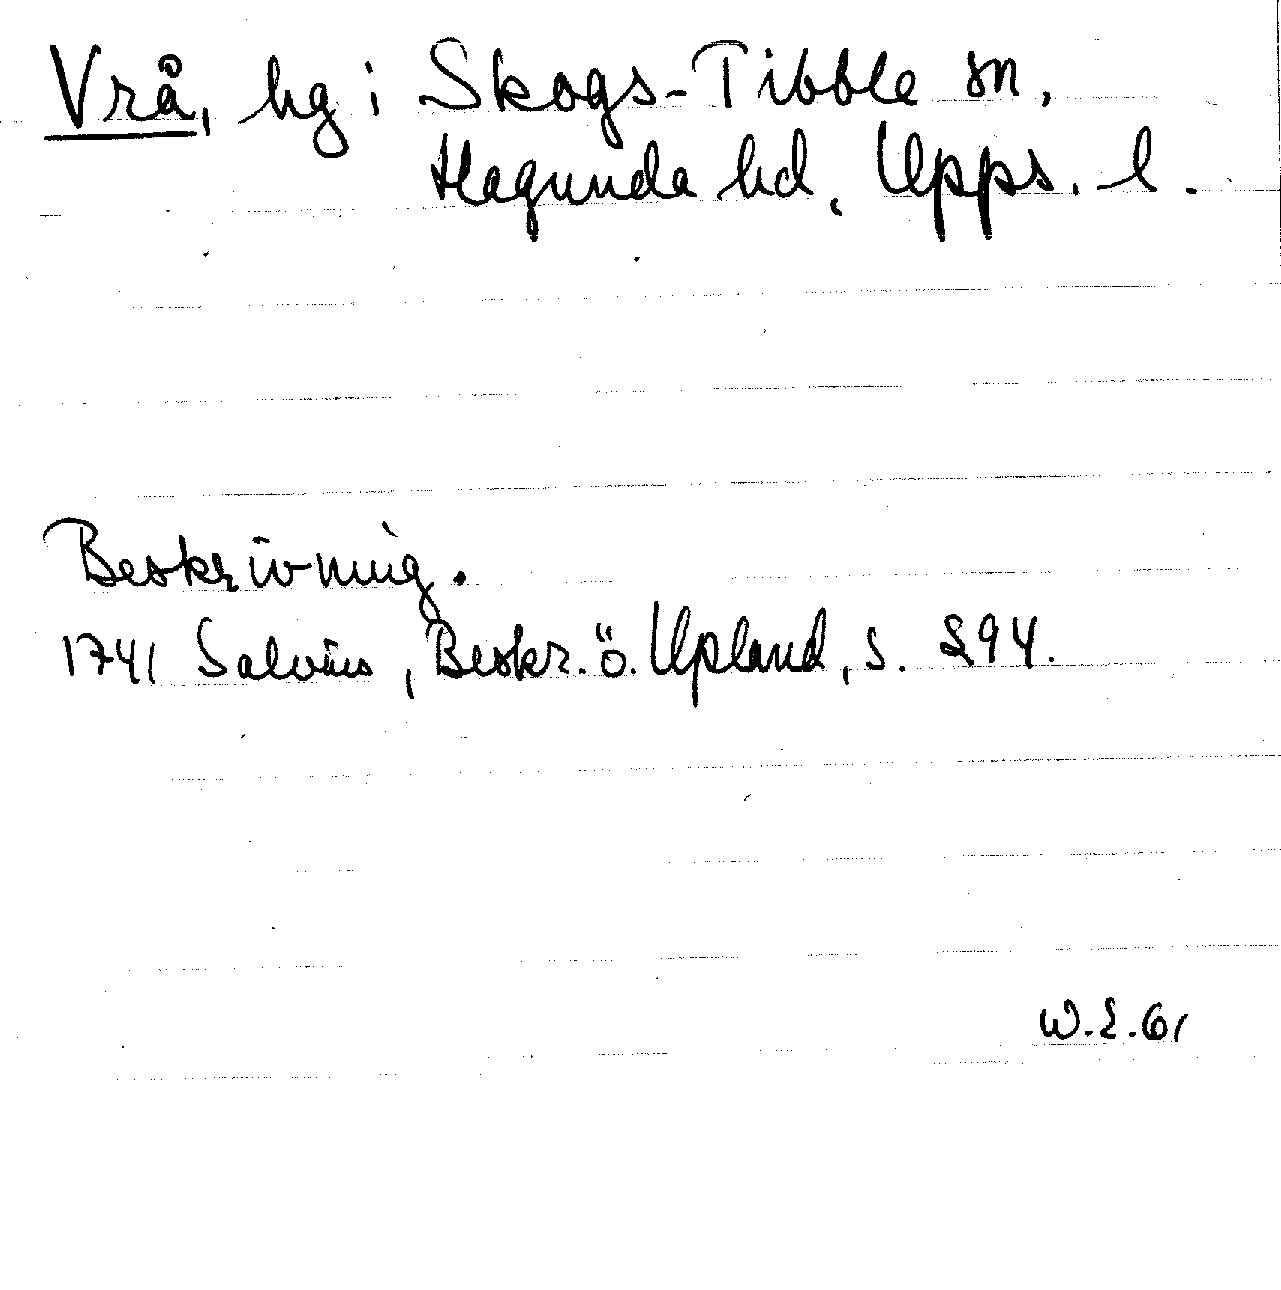 Vrå, hg i Skogs-Tibble sn,
Hagunda hd, Upps. l.
Beskrivning.
1741 Salvius, Beskr. ö. Upland, s. 294.
W.E.61